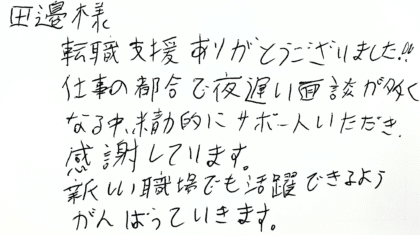 田邉様
転職支援ありがとうございました!!
仕事の都合で夜遅い面談が多く
なる中、精力的にサポートいただき、
感謝しています。
新しい職場でも活躍できるよう
がんばっていきます。